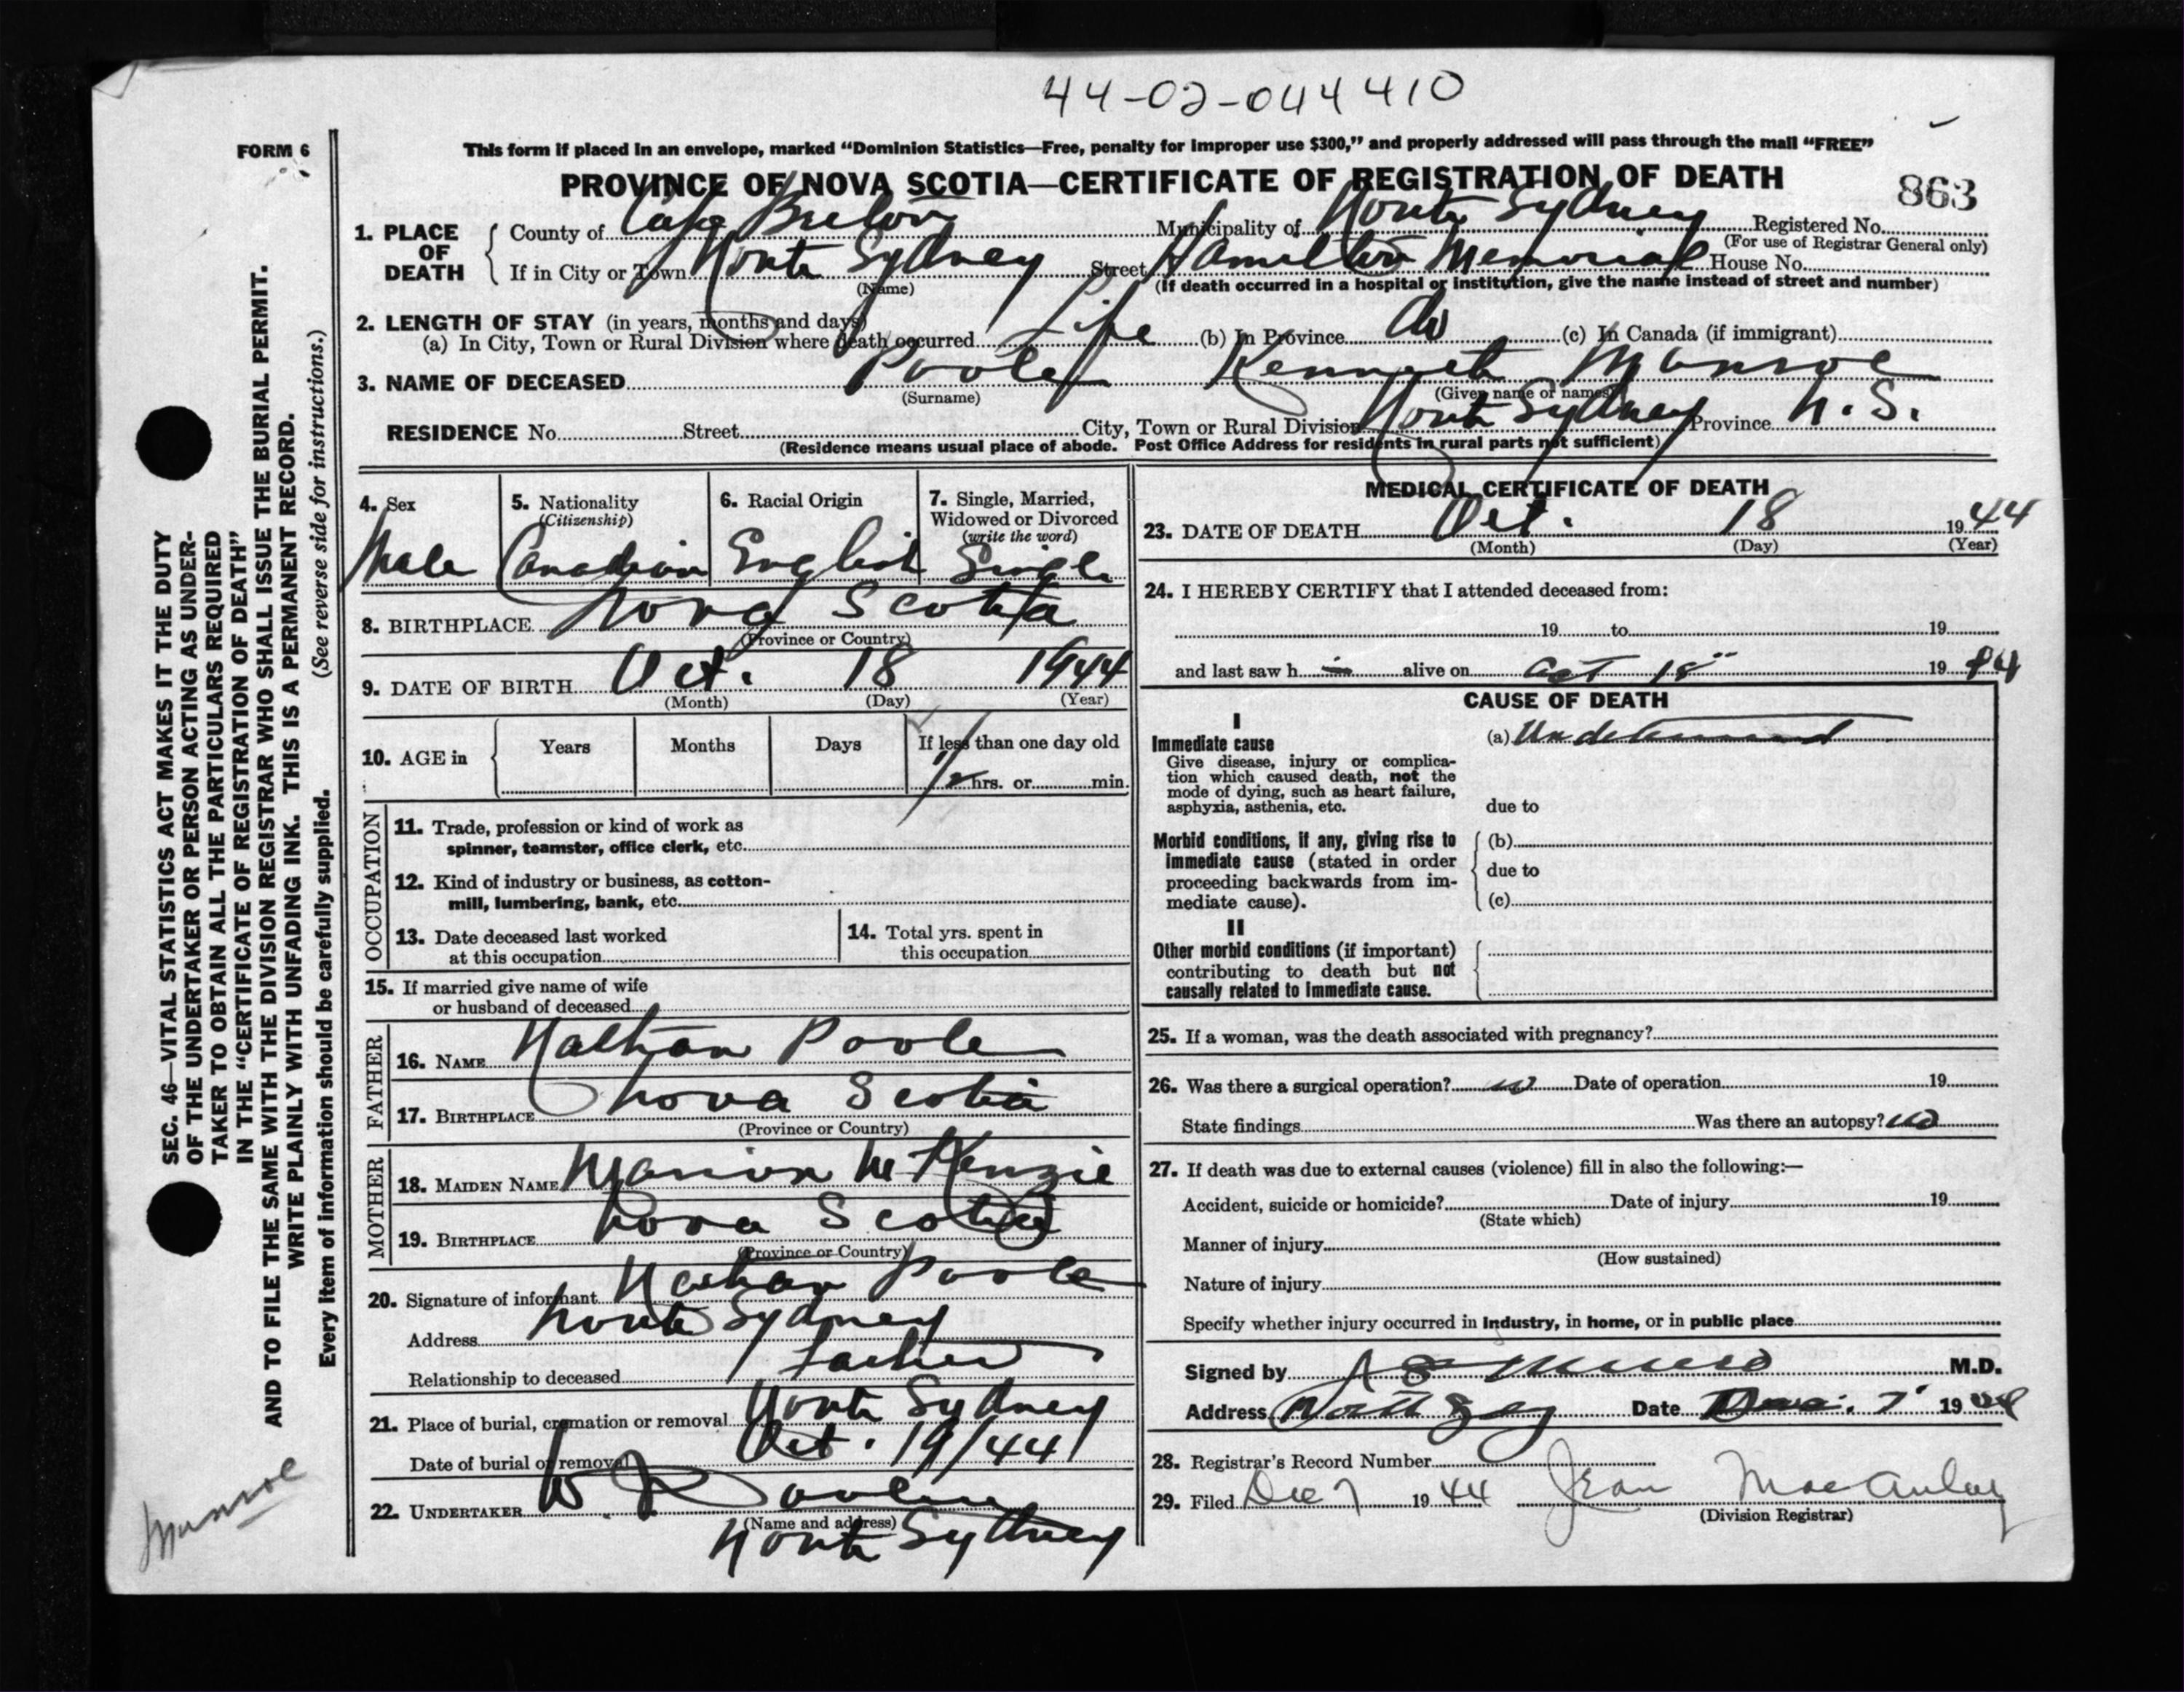 44-02-044410
FORM 6
This form if placed in an envelope, marked “Dominion Statistics—Free, penalty for improper use $300,” and properly addressed will pass through the mail “FREE”
PROVINCE OF NOVA SCOTIA—CERTIFICATE OF REGISTRATION OF DEATH
863
1. PLACE OF DEATH
County of Cape Breton Municipality of North Sydney Registered No.
(For use of Registrar General only)
If in City or Town North Sydney Street Hamilton Memorial House No.
(Name) (If death occurred in a hospital or institution, give the name instead of street and number)
2. LENGTH OF STAY (in years, months and days)
(a) In City, Town or Rural Division where death occurred Life (b) In Province do (c) In Canada (if immigrant)
3. NAME OF DECEASED Poole Kenneth Monroe
(Surname) (Given name or names)
RESIDENCE No. Street City, Town or Rural Division North Sydney Province N.S.
(Residence means usual place of abode. Post Office Address for residents in rural parts not sufficient)
4. Sex
Male
5. Nationality
(Citizenship)
Canadian
6. Racial Origin
English
7. Single, Married,
Widowed or Divorced
(write the word)
Single
8. BIRTHPLACE Nova Scotia
(Province or Country)
9. DATE OF BIRTH Oct. 18 1944
(Month) (Day) (Year)
10. AGE in Years Months Days If less than one day old
1/2 hrs. or min.
OCCUPATION
11. Trade, profession or kind of work as
spinner, teamster, office clerk, etc.
12. Kind of industry or business, as cotton-
mill, lumbering, bank, etc.
13. Date deceased last worked
at this occupation
14. Total yrs. spent in
this occupation
15. If married give name of wife
or husband of deceased
FATHER
16. NAME Nathan Poole
17. BIRTHPLACE Nova Scotia
(Province or Country)
MOTHER
18. MAIDEN NAME Marion McKenzie
19. BIRTHPLACE Nova Scotia
(Province or Country)
20. Signature of informant Nathan Poole
Address North Sydney
Relationship to deceased Father
21. Place of burial, cremation or removal North Sydney
Date of burial or removal Oct. 19/44
22. UNDERTAKER W
(Name and address)
North Sydney
MEDICAL CERTIFICATE OF DEATH
23. DATE OF DEATH Oct. 18 1944
(Month) (Day) (Year)
24. I HEREBY CERTIFY that I attended deceased from:
19 to 19
and last saw h im alive on Oct 18" 19 44
CAUSE OF DEATH
I
Immediate cause
Give disease, injury or complica-
tion which caused death, not the
mode of dying, such as heart failure,
asphyxia, asthenia, etc.
(a) Undetermined
due to
Morbid conditions, if any, giving rise to
immediate cause (stated in order
proceeding backwards from im-
mediate cause).
(b)
due to
(c)
II
Other morbid conditions (if important)
contributing to death but not
causally related to immediate cause.
25. If a woman, was the death associated with pregnancy?
26. Was there a surgical operation? no Date of operation 19
State findings Was there an autopsy? no
27. If death was due to external causes (violence) fill in also the following:—
Accident, suicide or homicide? Date of injury 19
(State which)
Manner of injury
(How sustained)
Nature of injury
Specify whether injury occurred in industry, in home, or in public place
Signed by M.D.
Address North Syd Date 7 1944
28. Registrar's Record Number
29. Filed Dec 7 1944 Jean MacAulay
(Division Registrar)
SEC. 46—VITAL STATISTICS ACT MAKES IT THE DUTY
OF THE UNDERTAKER OR PERSON ACTING AS UNDER-
TAKER TO OBTAIN ALL THE PARTICULARS REQUIRED
IN THE “CERTIFICATE OF REGISTRATION OF DEATH”
AND TO FILE THE SAME WITH THE DIVISION REGISTRAR WHO SHALL ISSUE THE BURIAL PERMIT.
WRITE PLAINLY WITH UNFADING INK. THIS IS A PERMANENT RECORD.
Every item of information should be carefully supplied. (See reverse side for instructions.)
Munroe